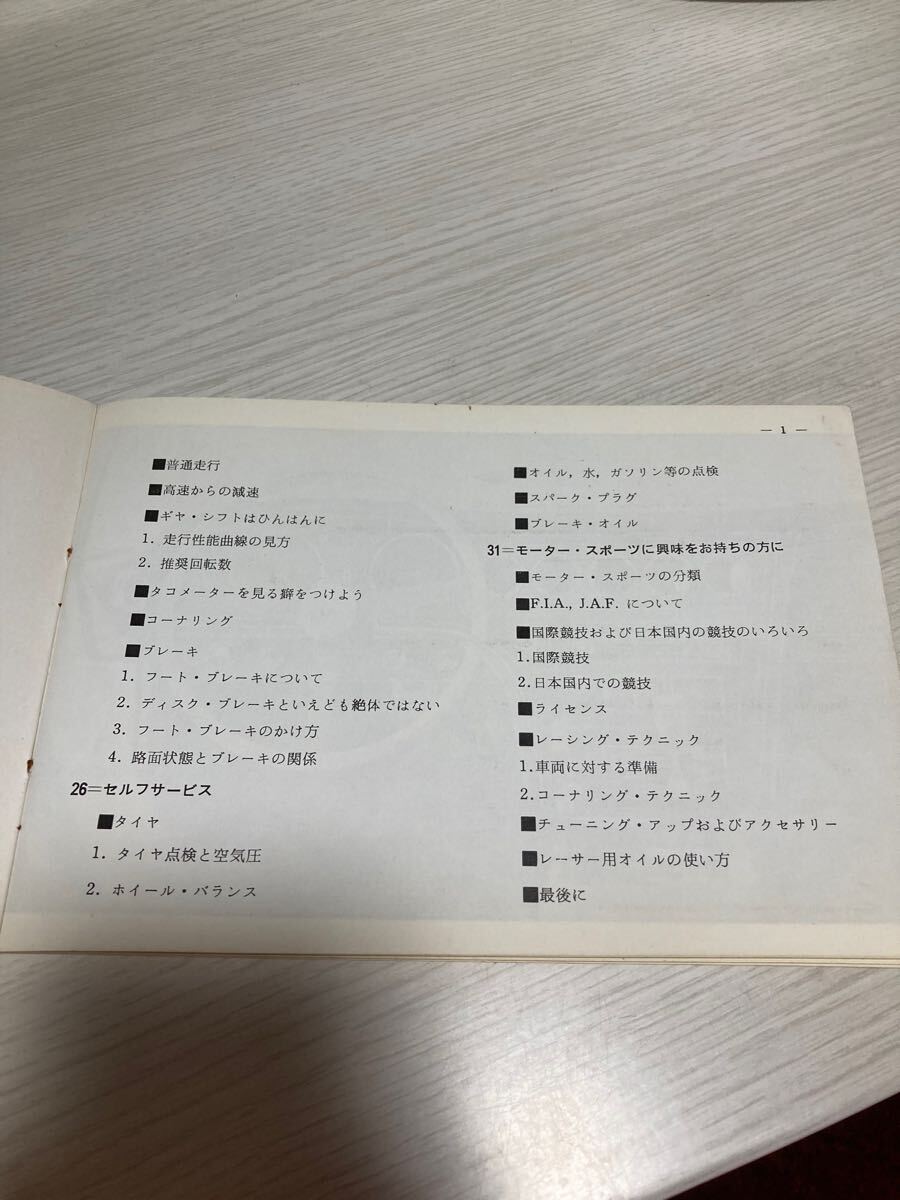 — 1 —
■普通走行
■高速からの減速
■ギヤ・シフトはひんぱんに
1. 走行性能曲線の見方
2. 推奨回転数
■タコメーターを見る癖をつけよう
■コーナリング
■ブレーキ
1. フート・ブレーキについて
2. ディスク・ブレーキといえども絶体ではない
3. フート・ブレーキのかけ方
4. 路面状態とブレーキの関係
26＝セルフサービス
■タイヤ
1. タイヤ点検と空気圧
2. ホイール・バランス
■オイル，水，ガソリン等の点検
■スパーク・プラグ
■ブレーキ・オイル
31＝モーター・スポーツに興味をお持ちの方に
■モーター・スポーツの分類
■F.I.A., J.A.F. について
■国際競技および日本国内の競技のいろいろ
1.国際競技
2.日本国内での競技
■ライセンス
■レーシング・テクニック
1.車両に対する準備
2.コーナリング・テクニック
■チューニング・アップおよびアクセサリー
■レーサー用オイルの使い方
■最後に